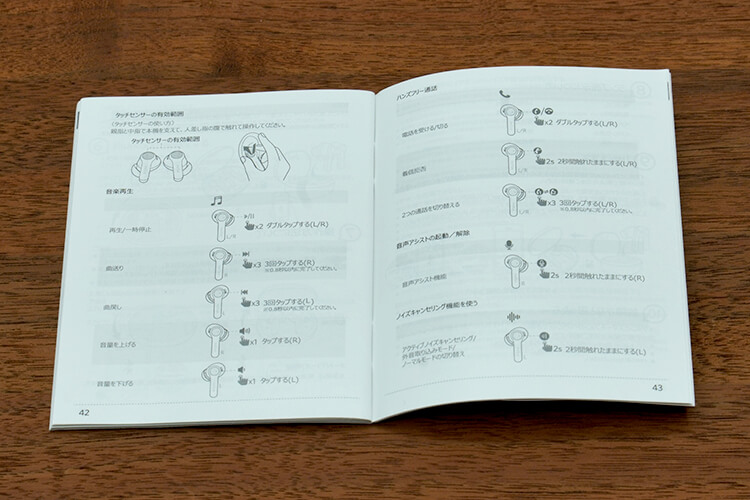 タッチセンサーの有効範囲
(タッチセンサーの使い方)
親指と中指で本機を支えて、人差し指の腹で触れて操作してください。
タッチセンサーの有効範囲
音楽再生
再生/一時停止
L/R
x2 ダブルタップする(L/R)
曲送り
R
x3 3回タップする(R)
※0.8秒以内に完了してください。
曲戻し
L
x3 3回タップする(L)
※0.8秒以内に完了してください。
音量を上げる
R
x1 タップする(R)
音量を下げる
L
x1 タップする(L)
42
ハンズフリー通話
電話を受ける/切る
L/R
x2 ダブルタップする(L/R)
着信拒否
L/R
2s 2秒間触れたままにする(L/R)
2つの通話を切り替える
L/R
x3 3回タップする(L/R)
※0.8秒以内に完了してください。
音声アシストの起動/解除
音声アシスト機能
R
2s 2秒間触れたままにする(R)
ノイズキャンセリング機能を使う
アクティブノイズキャンセリング/
外音取り込みモード/
ノーマルモードの切り替え
L
2s 2秒間触れたままにする(L)
43